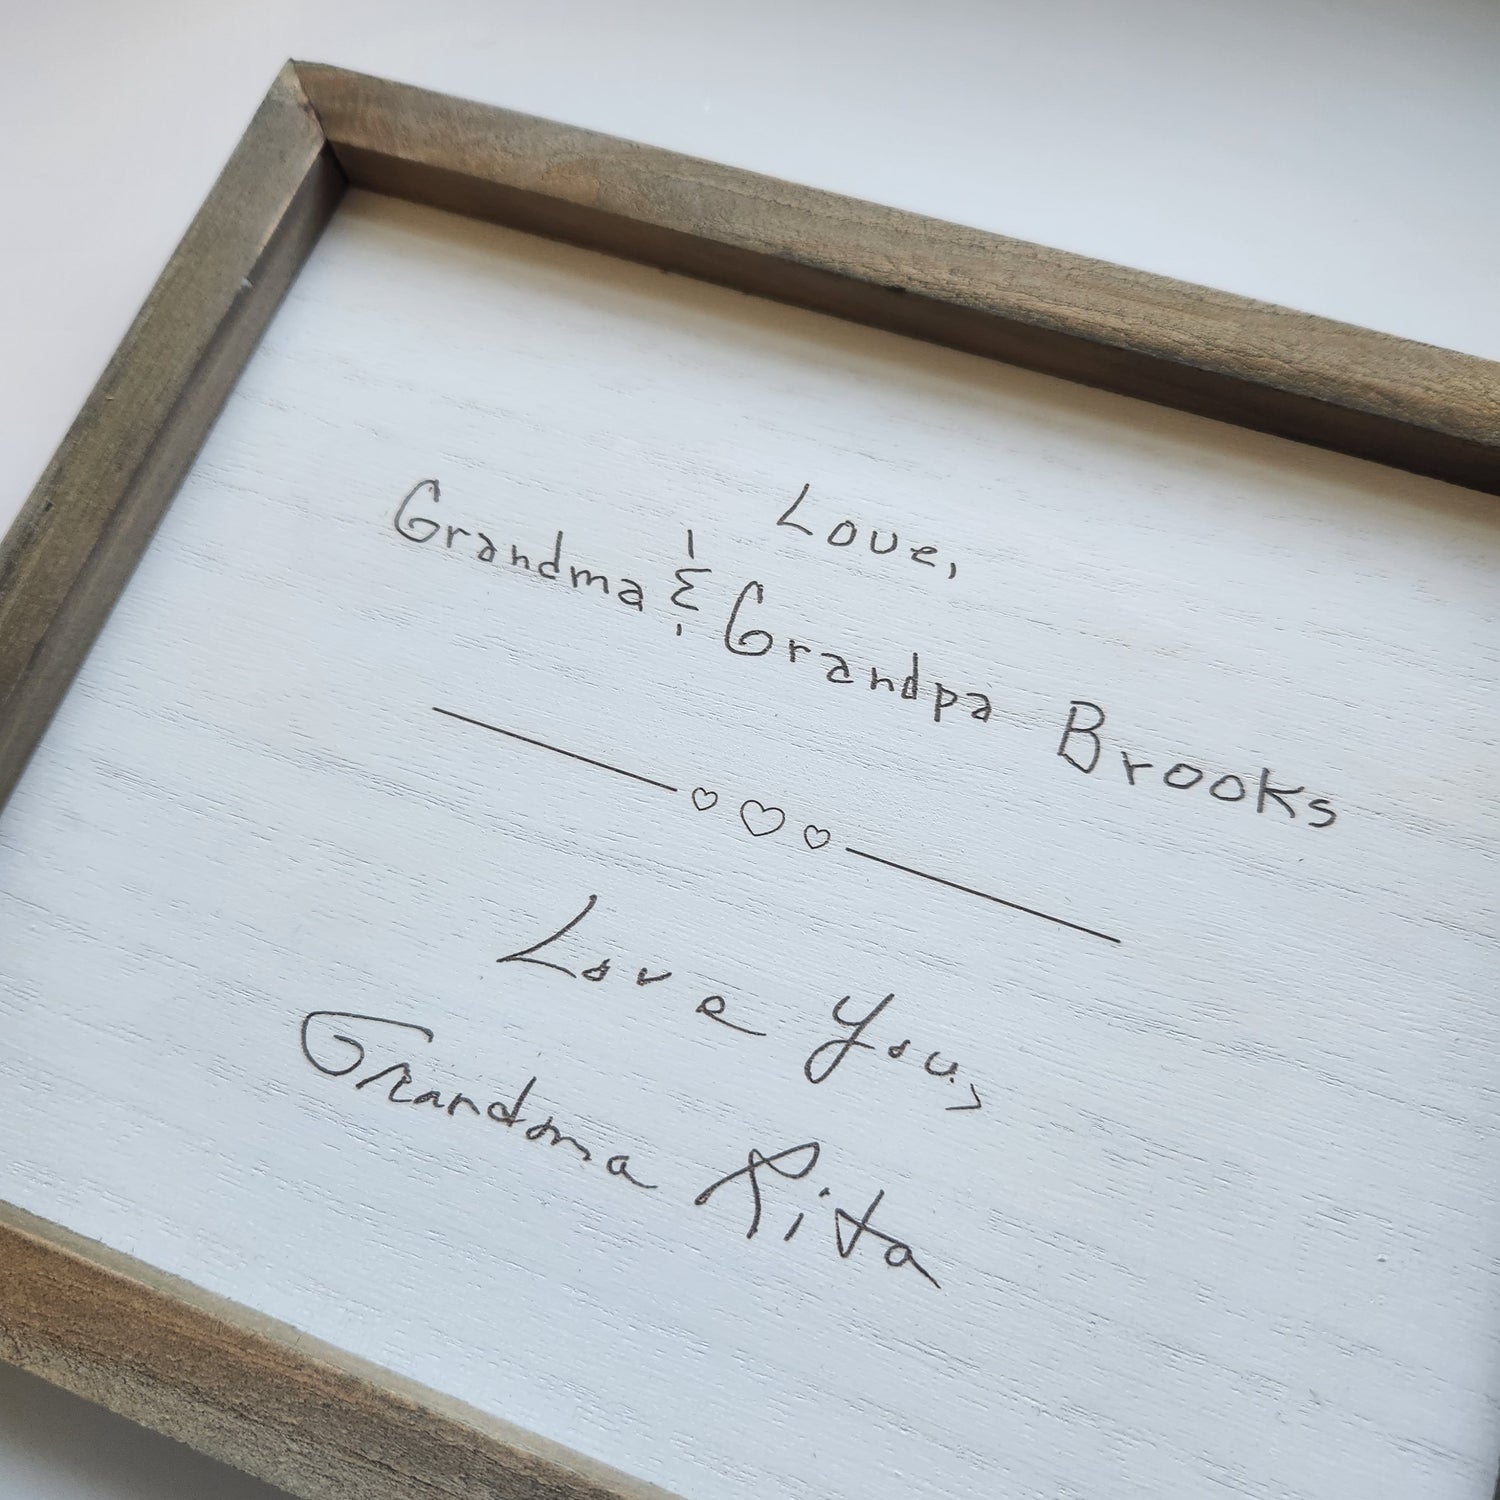 Love,
Grandma & Grandpa Brooks
Love You,
Grandma Rita